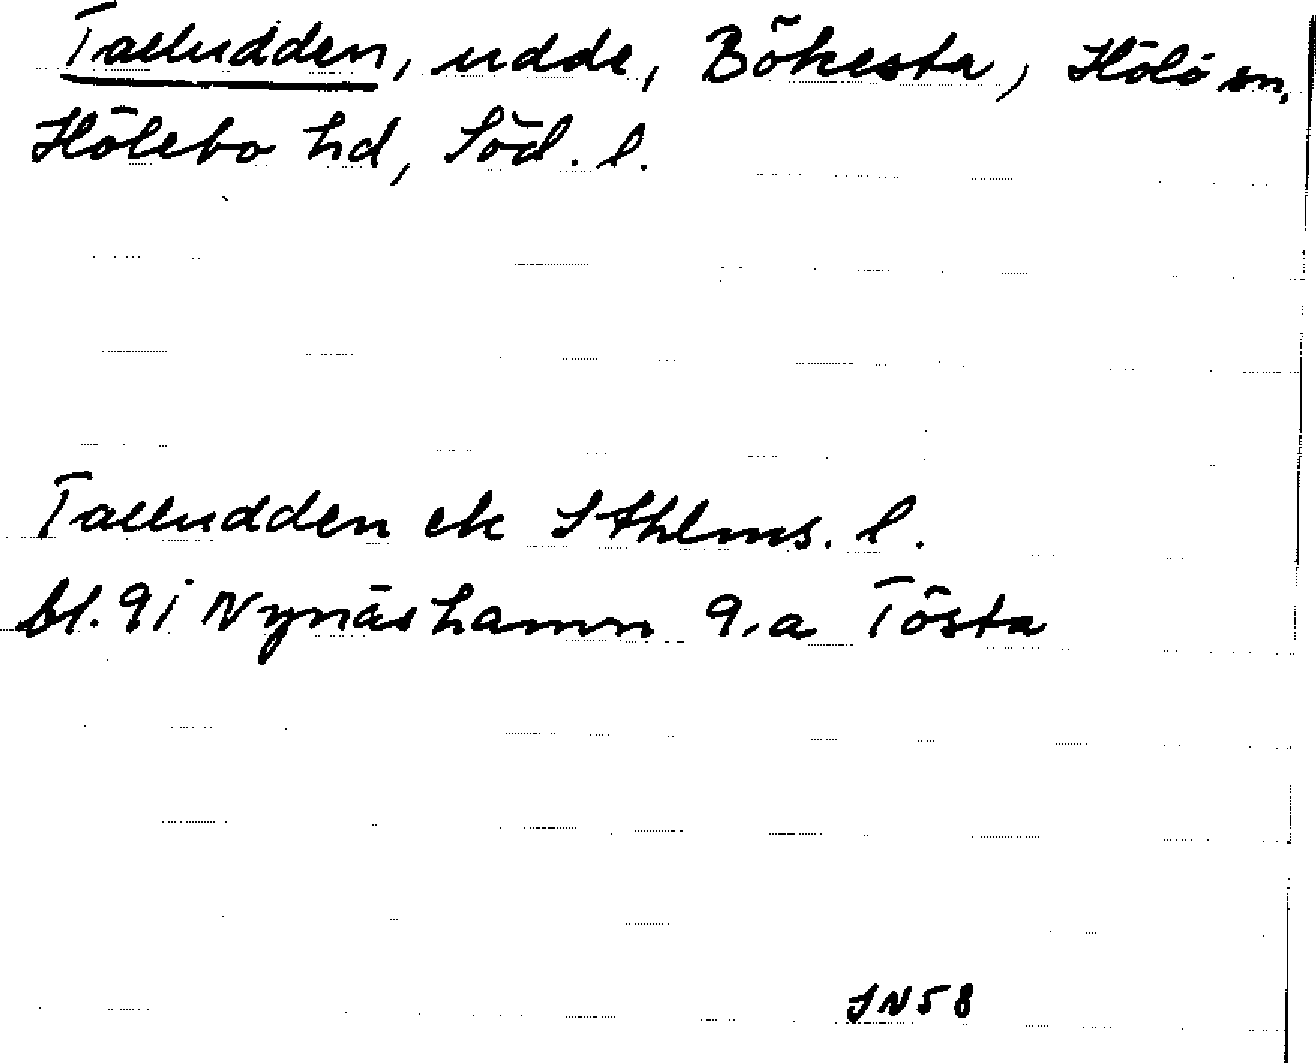 Talludden, udde, Bökesta, Hölö sn,
Hölebo hd, Söd. l.
Talludden ek Sthlms. l.
bl. 9i Nynäshamn 9.a Tösta
JN58